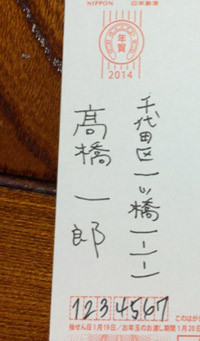 NIPPON 日本郵便
年賀
2014
千代田区一ッ橋一ー一ー一
髙橋一郎
1234567
抽せん日1月19日/お年玉のお渡し期間1月20日